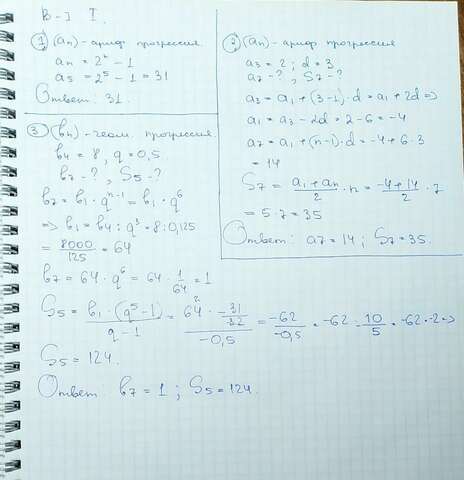 В-I I.
1) (an) - ариф прогрессия
an = 2ⁿ - 1
a5 = 2⁵ - 1 = 31
Ответ: 31.
2) (an) - ариф прогрессия
a3 = 2 ; d = 3
a7 - ? , S7 - ?
a3 = a1 + (3-1)·d = a1 + 2d =>
a1 = a3 - 2d = 2 - 6 = -4
a7 = a1 + (n-1)·d = -4 + 6·3
= 14
S7 = (a1 + an)/2 · n = (-4 + 14)/2 · 7
= 5·7 = 35
Ответ: a7 = 14 ; S7 = 35.
3) (bn) - геом. прогрессия.
b4 = 8 , q = 0,5.
b7 - ? , S5 - ?
b7 = b1 · qⁿ⁻¹ = b1 · q⁶
=> b1 = b4 : q³ = 8 : 0,125
= 8000/125 = 64
b7 = 64 · q⁶ = 64 · 1/64 = 1
S5 = b1 · (q⁵ - 1)/(q - 1) = (64 · -31/32)/(-0,5) = -62/-0,5 = -62 · 10/5 = -62 · 2 =>
S5 = 124.
Ответ: b7 = 1 ; S5 = 124.